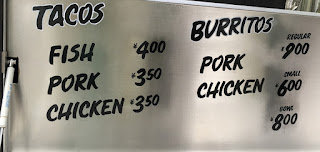 TACOS
FISH $4.00
PORK $3.50
CHICKEN $3.50
BURRITOS
REGULAR
PORK $9.00
SMALL
CHICKEN $6.00
BOWL
$8.00